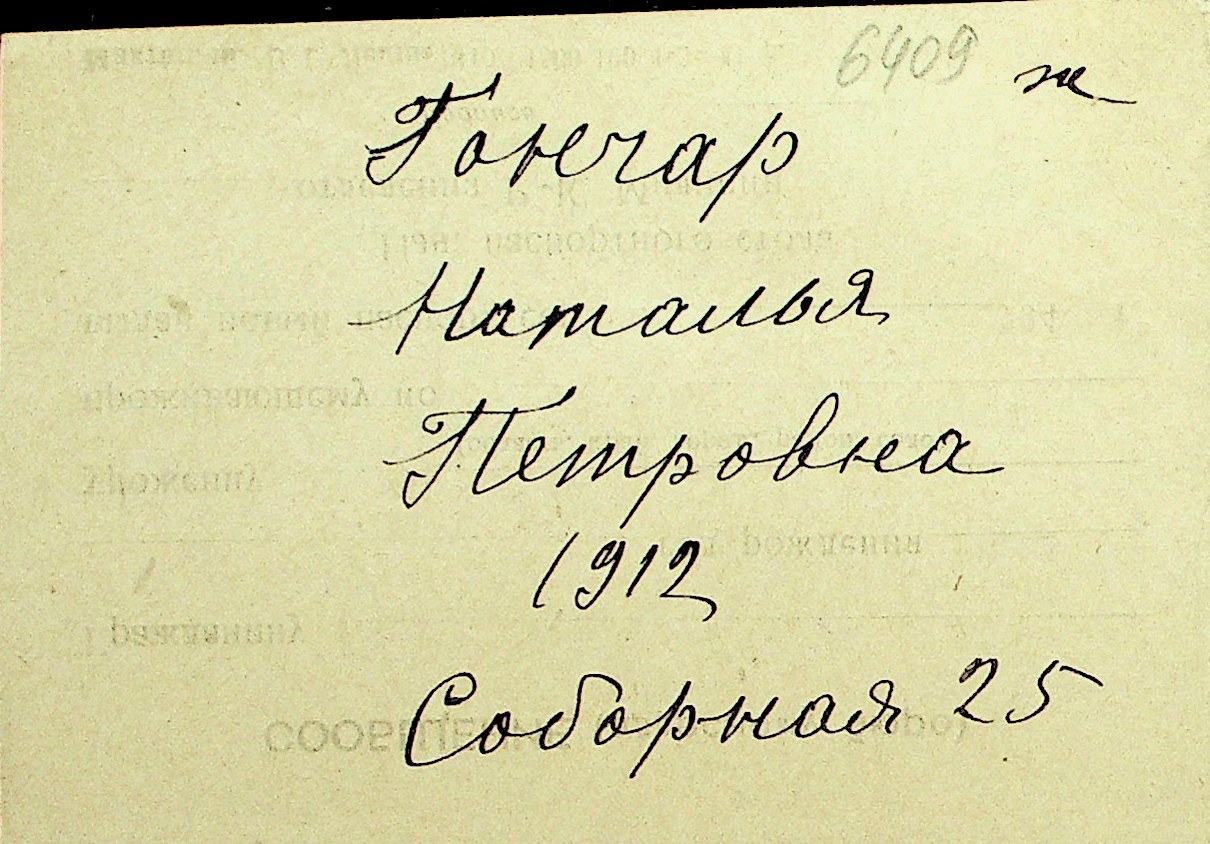 6409 ж
Гончар
Наталья
Петровна
1912
Соборная 25